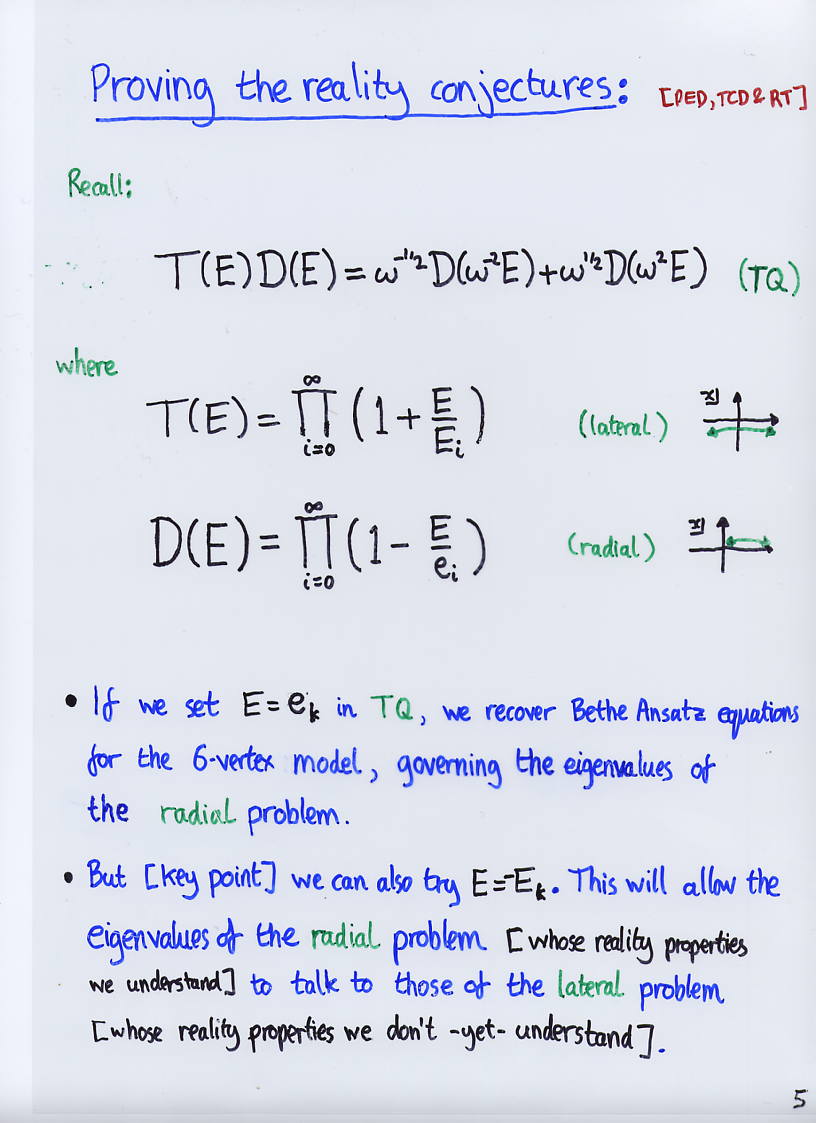 Proving the reality conjectures: [PED, TCD & RT]
Recall:
T(E)D(E) = ω^{-1/2} D(ω^{-2}E) + ω^{1/2} D(ω^{2}E) (TQ)
where
T(E) = ∏_{i=0}^{∞} (1 + E/E_i) (lateral) x
D(E) = ∏_{i=0}^{∞} (1 - E/e_i) (radial) x
• If we set E = e_k in TQ, we recover Bethe Ansatz equations
for the 6-vertex model, governing the eigenvalues of
the radial problem.
• But [key point] we can also try E = -E_k. This will allow the
eigenvalues of the radial problem [whose reality properties
we understand] to talk to those of the lateral problem
[whose reality properties we don't -yet- understand].
5